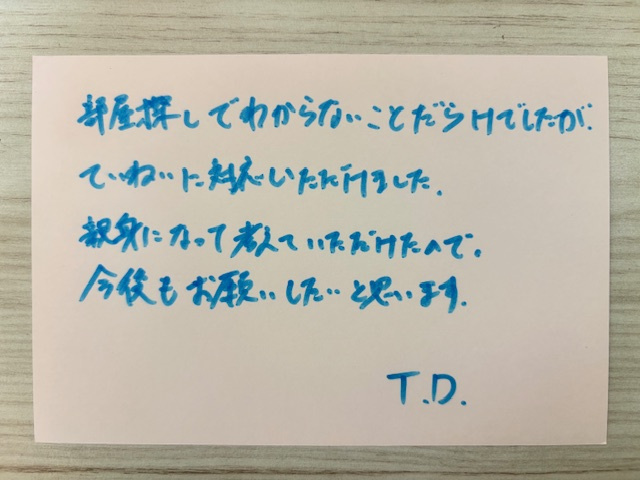 部屋探しでわからないことだらけでしたが、
ていねいに対応いただけました。
親身になって考えていただけたので、
今後もお願いしたいと思います。
T.D.